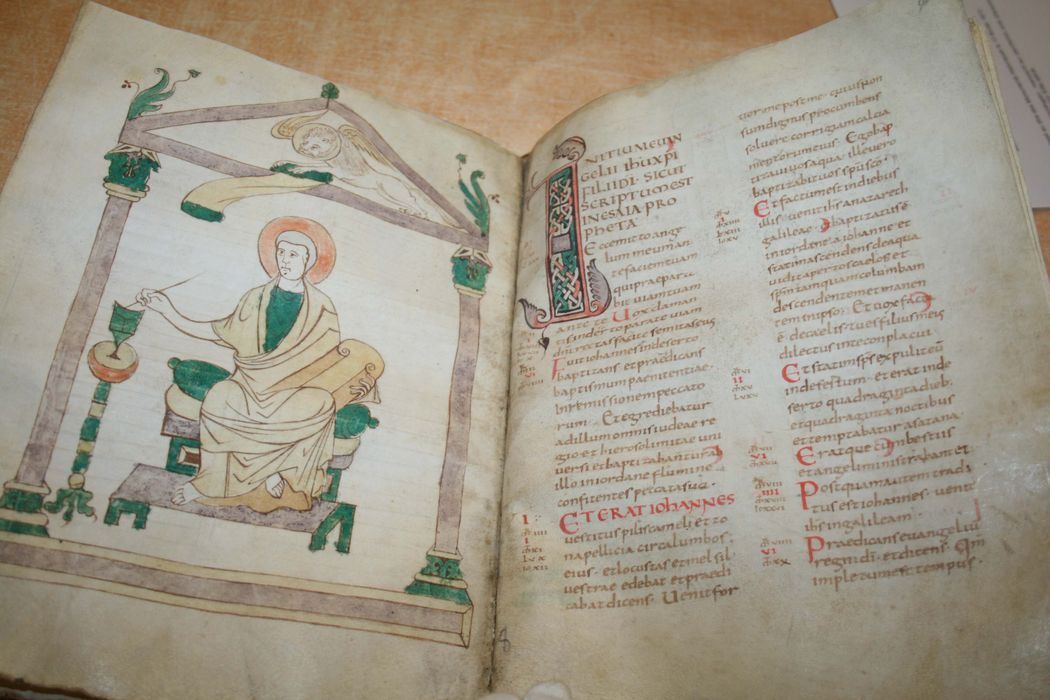 INITIUM EUAN
GELII IHU XPI
FILII DI · SICUT
SCRIPTUM EST
IN ESAIA PRO
PHETA
Ecce mitto ange
lum meum an
te faciem tuam
qui praepara
bit uiam tuam
ante te Uox claman
tis in deserto parate uiam
dni rectas facite semitas eius
Fuit iohannes in deserto
baptizans et praedicans
baptismum paenitentiae
in remissionem peccato
rum · Et egrediebatur
ad illum omnis iudeae re
gio et hierosolimitae uni
uersi et baptizabantur ab
illo in iordane flumine
confitentes peccata sua ·
ET ERAT IOHANNES
uestitus pilis cameli et zo
na pellicia circa lumbos
eius · et locustas et mel sil
uestre edebat et praedi
cabat dicens · Uenit for
tior me post me · cuius non
sum dignus procumbens
soluere corrigiam calcia
mentorum eius · Ego bap
tizaui uos aqua · ille uero
baptizabit uos spu sco ·
Et factum est in diebus
illis uenit ihs a nazareth
galileae · et baptizatus ē
in iordane a iohanne et
statim ascendens de aqua
uidit apertos caelos et
spm tanquam columbam
descendentem et manen
tem in ipso · Et uox facta
ē de caelis tu es filius meus
dilectus in te conplacui ·
Et statim sps expulit eū
in desertum · et erat in de
serto quadraginta dieb.
et quadraginta noctibus
et temptabatur a satana ·
Eratque cum bestiis
et angeli ministrabant ei
Postquam autem tradi
tus est iohannes · uenit
ihs in galileam ·
Praedicans euangeliū
regni di · et dicens · Qm
impletum est tempus ·